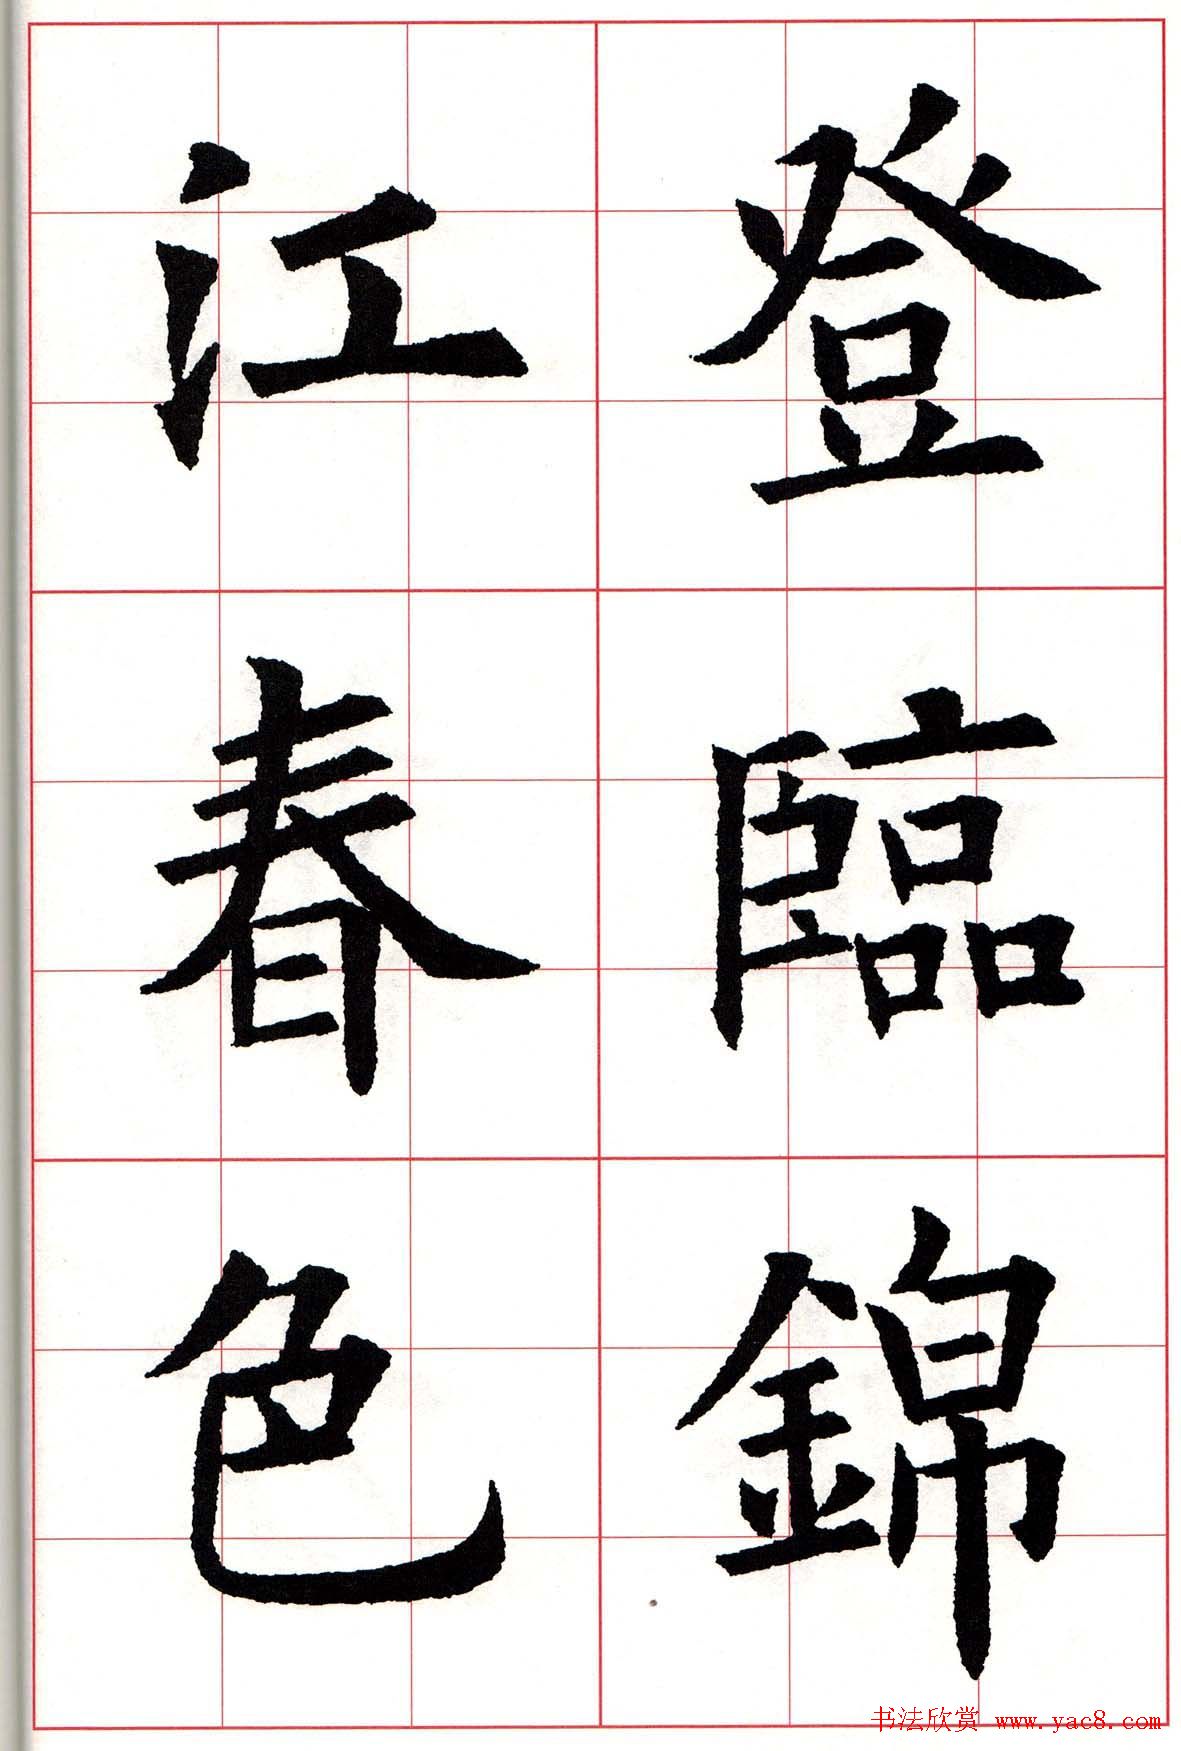 登臨錦
江春色
书法欣赏 www.yac8.com